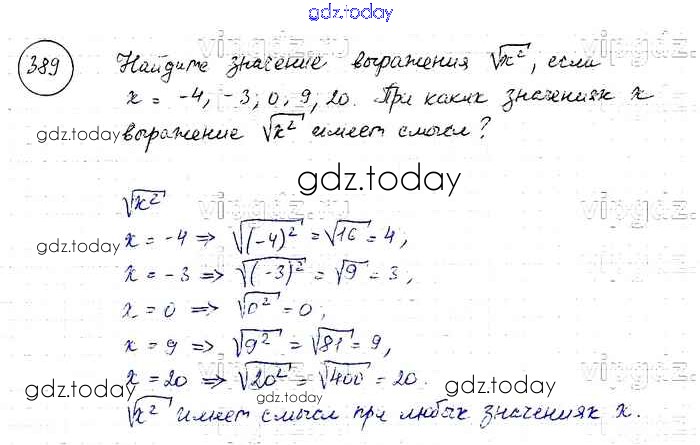 gdz.today
389 Найдите значение выражения √x², если
x = -4, -3, 0, 9, 20. При каких значениях x
выражение √x² имеет смысл?
gdz.today
gdz.today
√x²
x = -4 => √(-4)² = √16 = 4,
gdz.today
x = -3 => √(-3)² = √9 = 3,
x = 0 => √0² = 0,
x = 9 => √9² = √81 = 9,
x = 20 => √20² = √400 = 20.
gdz.today
gdz.today
√x² имеет смысл при любых значениях x.